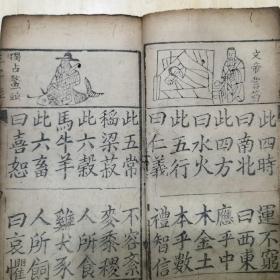 文帝
此四時運不窮
曰南北曰西東
此四方應乎中
曰水火木金土
此五行本乎數
曰仁義禮智信
獨占鰲頭
此五常不容紊
稻粱菽麥黍稷
此六穀人所食
馬牛羊雞犬豕
此六畜人所飼
曰喜怒曰哀懼